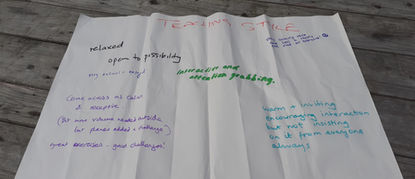 TEACHING STYLE
relaxed
open to possibility
Interactive and
attention grabbing.
Come across as calm
& receptive
(But more volume needed outside
but planes added a challenge)
great exercises - good challenges!
warm + inviting
encouraging interaction
but not insisting
on it from everyone
always